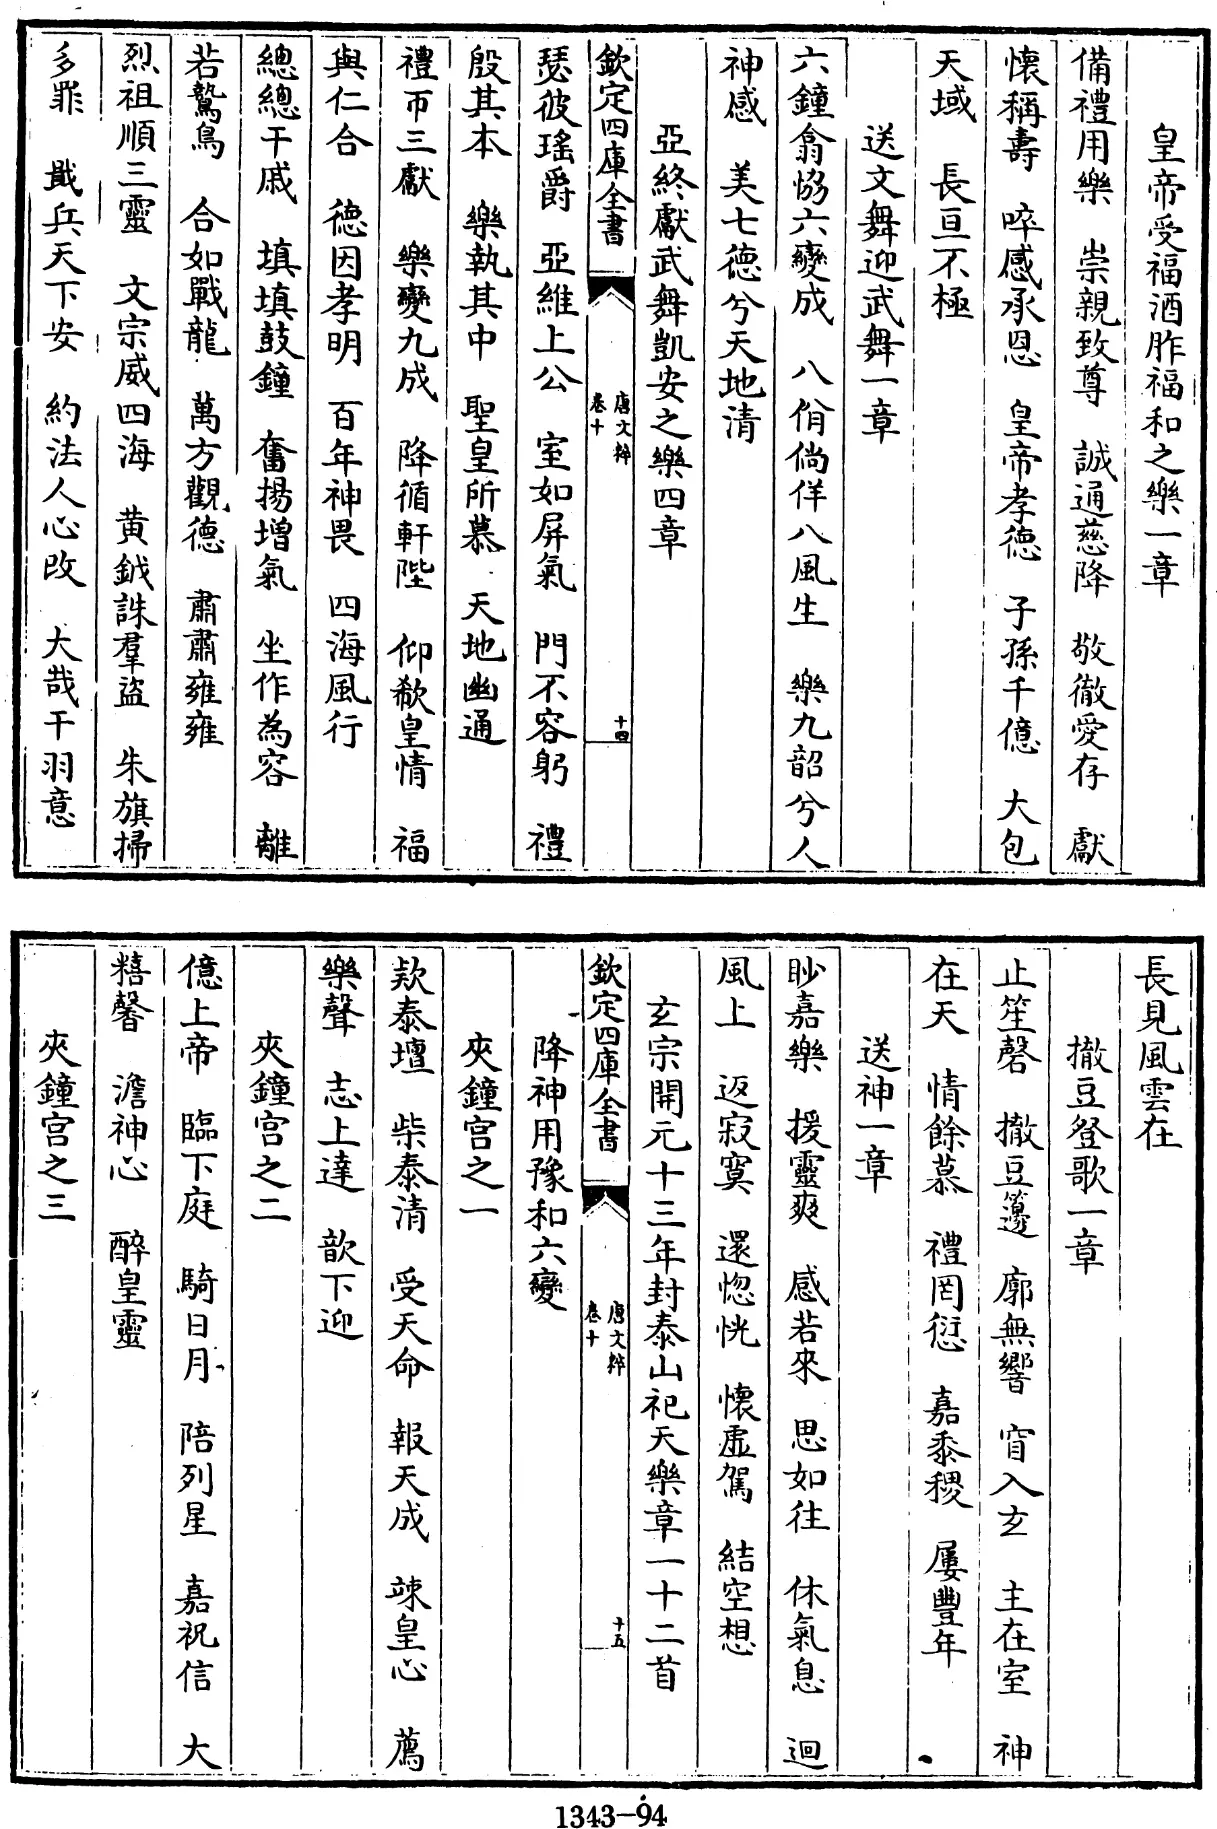 皇帝受福酒胙福和之樂一章
備禮用樂 崇親致尊 誠通慈降 敬徹愛存 獻
懷稱壽 啐感承恩 皇帝孝德 子孫千億 大包
天域 長亘不極
送文舞迎武舞一章
六鐘翕協六變成 八佾倘佯八風生 樂九韶兮人
神感 美七德兮天地清
亞終獻武舞凱安之樂四章
欽定四庫全書
唐文粹
卷十
十四
瑟彼瑤爵 亞維上公 室如屏氣 門不容躬 禮
殷其本 樂執其中 聖皇所慕 天地幽通
禮帀三獻 樂變九成 降循軒陛 仰欷皇情 福
與仁合 德因孝明 百年神畏 四海風行
總總干戚 填填鼓鐘 奮揚增氣 坐作為容 離
若鷙鳥 合如戰龍 萬方觀德 肅肅雍雍
烈祖順三靈 文宗威四海 黄鉞誅羣盜 朱旗掃
多罪 戢兵天下安 約法人心改 大哉干羽意
長見風雲在
撤豆登歌一章
止笙磬 撤豆籩 廓無響 窅入玄 主在室 神
在天 情餘慕 禮罔愆 嘉黍稷 屢豐年
送神一章
眇嘉樂 援靈爽 感若來 思如往 休氣息 迴
風上 返寂寞 還惚恍 懷虛駕 結空想
玄宗開元十三年封泰山祀天樂章一十二首
欽定四庫全書
唐文粹
卷十
十五
降神用豫和六變
夾鐘宮之一
欵泰壇 柴泰清 受天命 報天成 竦皇心 薦
樂聲 志上達 歆下迎
夾鐘宮之二
億上帝 臨下庭 騎日月 陪列星 嘉祝信 大
糦馨 澹神心 醉皇靈
夾鐘宮之三
1343-94